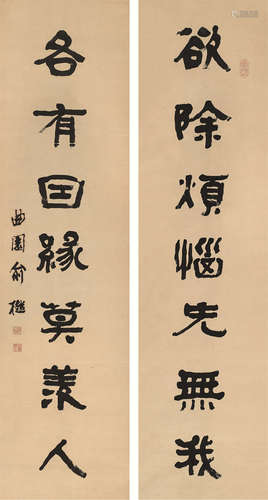 欲除煩惱先無我
各有因緣莫羨人
曲園俞樾